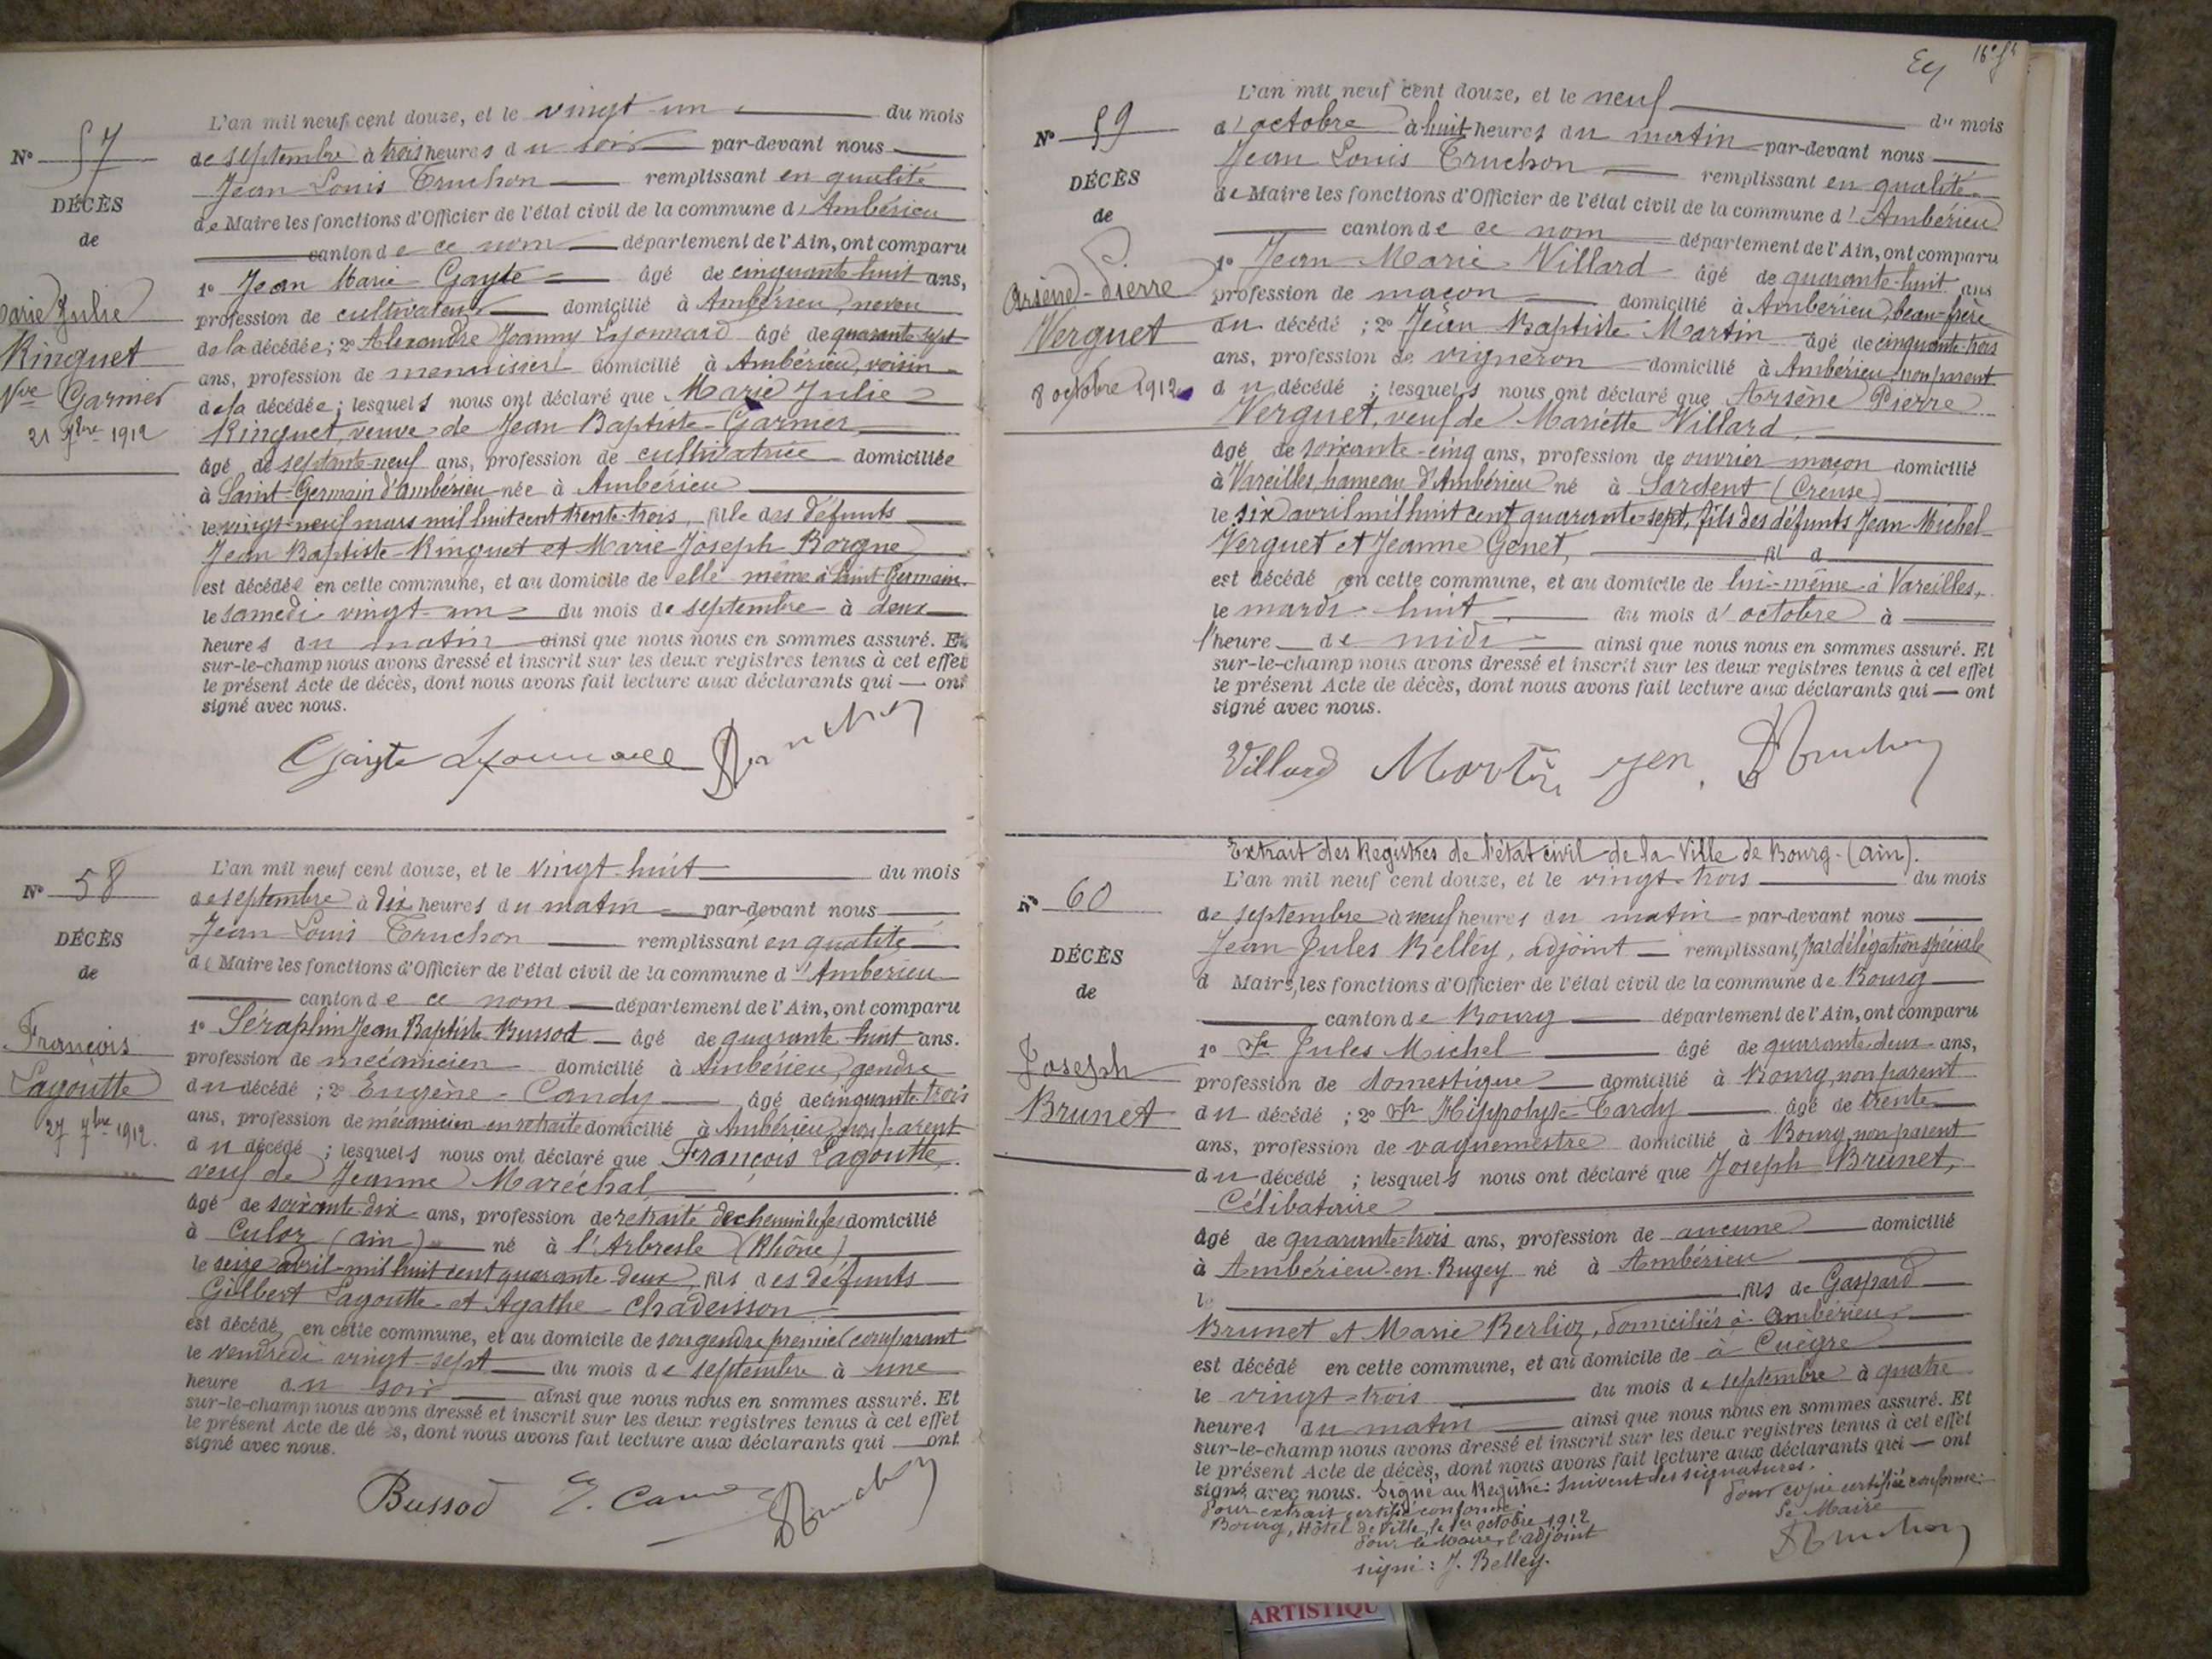 L'an mil neuf cent douze, et le vingt-un du mois
Nº 57
de septembre à trois heures du soir par-devant nous
Jean Louis Truchon remplissant en qualité
DÉCÈS
de Maire les fonctions d'Officier de l'état civil de la commune d'Ambérieu
de
canton de ce nom département de l'Ain, ont comparu
1º Jean Marie Gayte âgé de cinquante huit ans,
Marie Julie
profession de cultivateur domicilié à Ambérieu, neveu
Ringuet
de la décédée ; 2º Alexandre Joanny Lyonnard âgé de quarante-sept
ans, profession de menuisier domicilié à Ambérieu, voisin
Vve Garnier
de la décédée ; lesquels nous ont déclaré que Marie Julie
21 7bre 1912
Ringuet, veuve de Jean Baptiste Garnier
âgé de septante-neuf ans, profession de cultivatrice domiciliée
à Saint-Germain d'Ambérieu née à Ambérieu
le vingt-neuf mars mil huit cent trente-trois, fille des défunts
Jean Baptiste Ringuet et Marie Joseph Borgne
est décédée en cette commune, et au domicile de elle même à Saint Germain
le samedi vingt-un du mois de septembre à deux
heures du matin ainsi que nous nous en sommes assuré. Et
sur-le-champ nous avons dressé et inscrit sur les deux registres tenus à cet effet
le présent Acte de décès, dont nous avons fait lecture aux déclarants qui — ont
signé avec nous.
Gayte Lyonnard Truchon
L'an mil neuf cent douze, et le vingt-huit du mois
Nº 58
de septembre à dix heures du matin par-devant nous
Jean Louis Truchon remplissant en qualité
DÉCÈS
de Maire les fonctions d'Officier de l'état civil de la commune d'Ambérieu
de
canton de ce nom département de l'Ain, ont comparu
1º Séraphin Jean Baptiste Bussod âgé de quarante-huit ans.
François
profession de mécanicien domicilié à Ambérieu, gendre
Lagoutte
du décédé ; 2º Eugène Candy âgé de cinquante trois
27 7bre 1912.
ans, profession de mécanicien en retraite domicilié à Ambérieu non parent
du décédé ; lesquels nous ont déclaré que François Lagoutte,
veuf de Jeanne Maréchal
âgé de soixante-dix ans, profession de retraité de chemin de fer domicilié
à Culoz (Ain) né à l'Arbresle (Rhône)
le seize avril mil huit cent quarante-deux, fils des défunts
Gilbert Lagoutte et Agathe Chadeisson
est décédé en cette commune, et au domicile de son gendre premier comparant
le vendredi vingt-sept du mois de septembre à une
heure du soir ainsi que nous nous en sommes assuré. Et
sur-le-champ nous avons dressé et inscrit sur les deux registres tenus à cet effet
le présent Acte de décès, dont nous avons fait lecture aux déclarants qui — ont
signé avec nous.
Bussod E. Candy Truchon
L'an mil neuf cent douze, et le neuf du mois
Nº 59
d'octobre à huit heures du matin par-devant nous
Jean Louis Truchon remplissant en qualité
DÉCÈS
de Maire les fonctions d'Officier de l'état civil de la commune d'Ambérieu
de
canton de ce nom département de l'Ain, ont comparu
1º Jean Marie Villard âgé de quarante-huit ans
Arsène-Pierre
profession de maçon domicilié à Ambérieu, beau-frère
Verguet
du décédé ; 2º Jean Baptiste Martin âgé de cinquante-trois
ans, profession de vigneron domicilié à Ambérieu, non parent
8 octobre 1912
du décédé ; lesquels nous ont déclaré que Arsène Pierre
Verguet, veuf de Mariette Villard,
âgé de soixante-cinq ans, profession de ouvrier maçon domicilié
à Vareilles, hameau d'Ambérieu né à Sardent (Creuse)
le six avril mil huit cent quarante-sept, fils des défunts Jean Michel
Verguet et Jeanne Genet, fil d
est décédé en cette commune, et au domicile de lui-même à Vareilles,
le mardi huit du mois d'octobre à
l'heure de midi ainsi que nous nous en sommes assuré. Et
sur-le-champ nous avons dressé et inscrit sur les deux registres tenus à cet effet
le présent Acte de décès, dont nous avons fait lecture aux déclarants qui — ont
signé avec nous.
Villard Martin Truchon
Extrait des Registres de l'état civil de la Ville de Bourg-(Ain).
L'an mil neuf cent douze, et le vingt-trois du mois
Nº 60
de septembre à neuf heures du matin par-devant nous
Jean Jules Belley, adjoint remplissant, par délégation spéciale
DÉCÈS
d Maire, les fonctions d'Officier de l'état civil de la commune de Bourg
de
canton de Bourg département de l'Ain, ont comparu
1º Sr Jules Michel âgé de quarante-deux ans,
Joseph
profession de domestique domicilié à Bourg, non parent
Brunet
du décédé ; 2º Sr Hippolyte Tardy âgé de trente
ans, profession de vaguemestre domicilié à Bourg, non parent
du décédé ; lesquels nous ont déclaré que Joseph Brunet,
Célibataire
âgé de quarante-trois ans, profession de aucune domicilié
à Ambérieu-en-Bugey né à Ambérieu
le fils de Gaspard
Brunet et Marie Berlioz, domiciliés à Ambérieu,
est décédé en cette commune, et au domicile de à Cuègre
le vingt-trois du mois de septembre à quatre
heures du matin ainsi que nous nous en sommes assuré. Et
sur-le-champ nous avons dressé et inscrit sur les deux registres tenus à cet effet
le présent Acte de décès, dont nous avons fait lecture aux déclarants qui — ont
signé avec nous. Signé au Registre : Suivent les signatures.
Pour extrait certifié conforme :
Bourg, Hôtel de Ville, le 1er octobre 1912,
Pour le Maire, l'adjoint
signé : J. Belley.
Pour copie certifiée conforme :
Le Maire
Truchon
ARTISTIQU